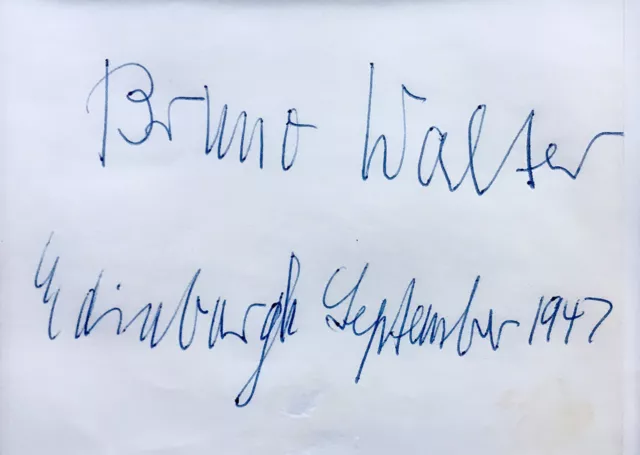 Bruno Walter
Edinburgh September 1947